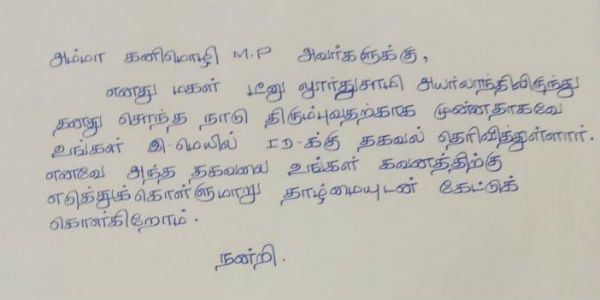 அம்மா கனிமொழி M.P அவர்களுக்கு,
எனது மகள் டீனு அயர்லாந்திலிருந்து
தனது சொந்த நாடு திரும்புவதற்காக முன்னதாகவே
உங்கள் இ-மெயில் ID-க்கு தகவல் தெரிவித்துள்ளார்.
எனவே அந்த தகவலை உங்கள் கவனத்திற்கு
எடுத்துக்கொள்ளுமாறு தாழ்மையுடன் கேட்டுக்
கொள்கிறோம்.
நன்றி.